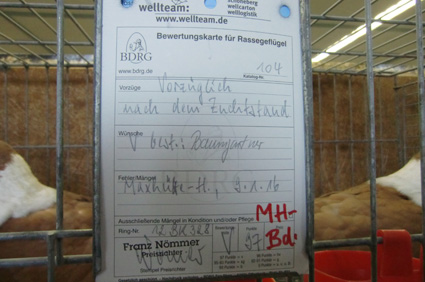 wellteam:
www.wellteam.de
wellcarton
welllogistik
Bewertungskarte für Rassegeflügel
BDRG
www.bdrg.de
Katalog-Nr. 104
Vorzüge Vorzüglich
nach dem Zuchtstand
Wünsche
best.: Baumgartner
Fehler/Mängel
Maxhütte-H., 9.1.16
Ausschließende Mängel in Kondition und/oder Pflege
MH-
Bd.
Ring-Nr.
V 97
Franz Nömmer
Preisrichter
Stempel Preisrichter